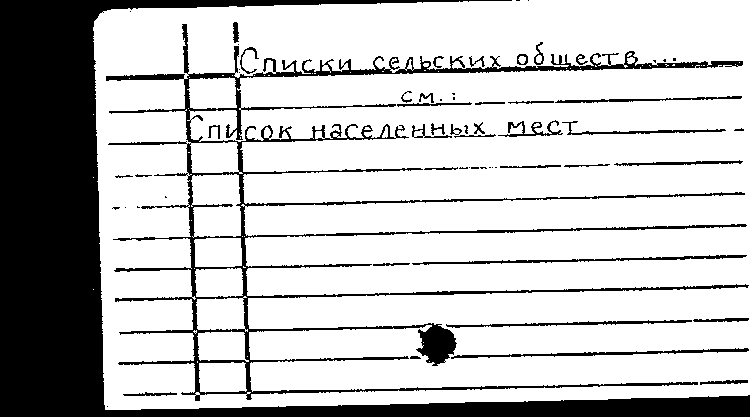 Списки сельских обществ ...
см.:
Список населенных мест